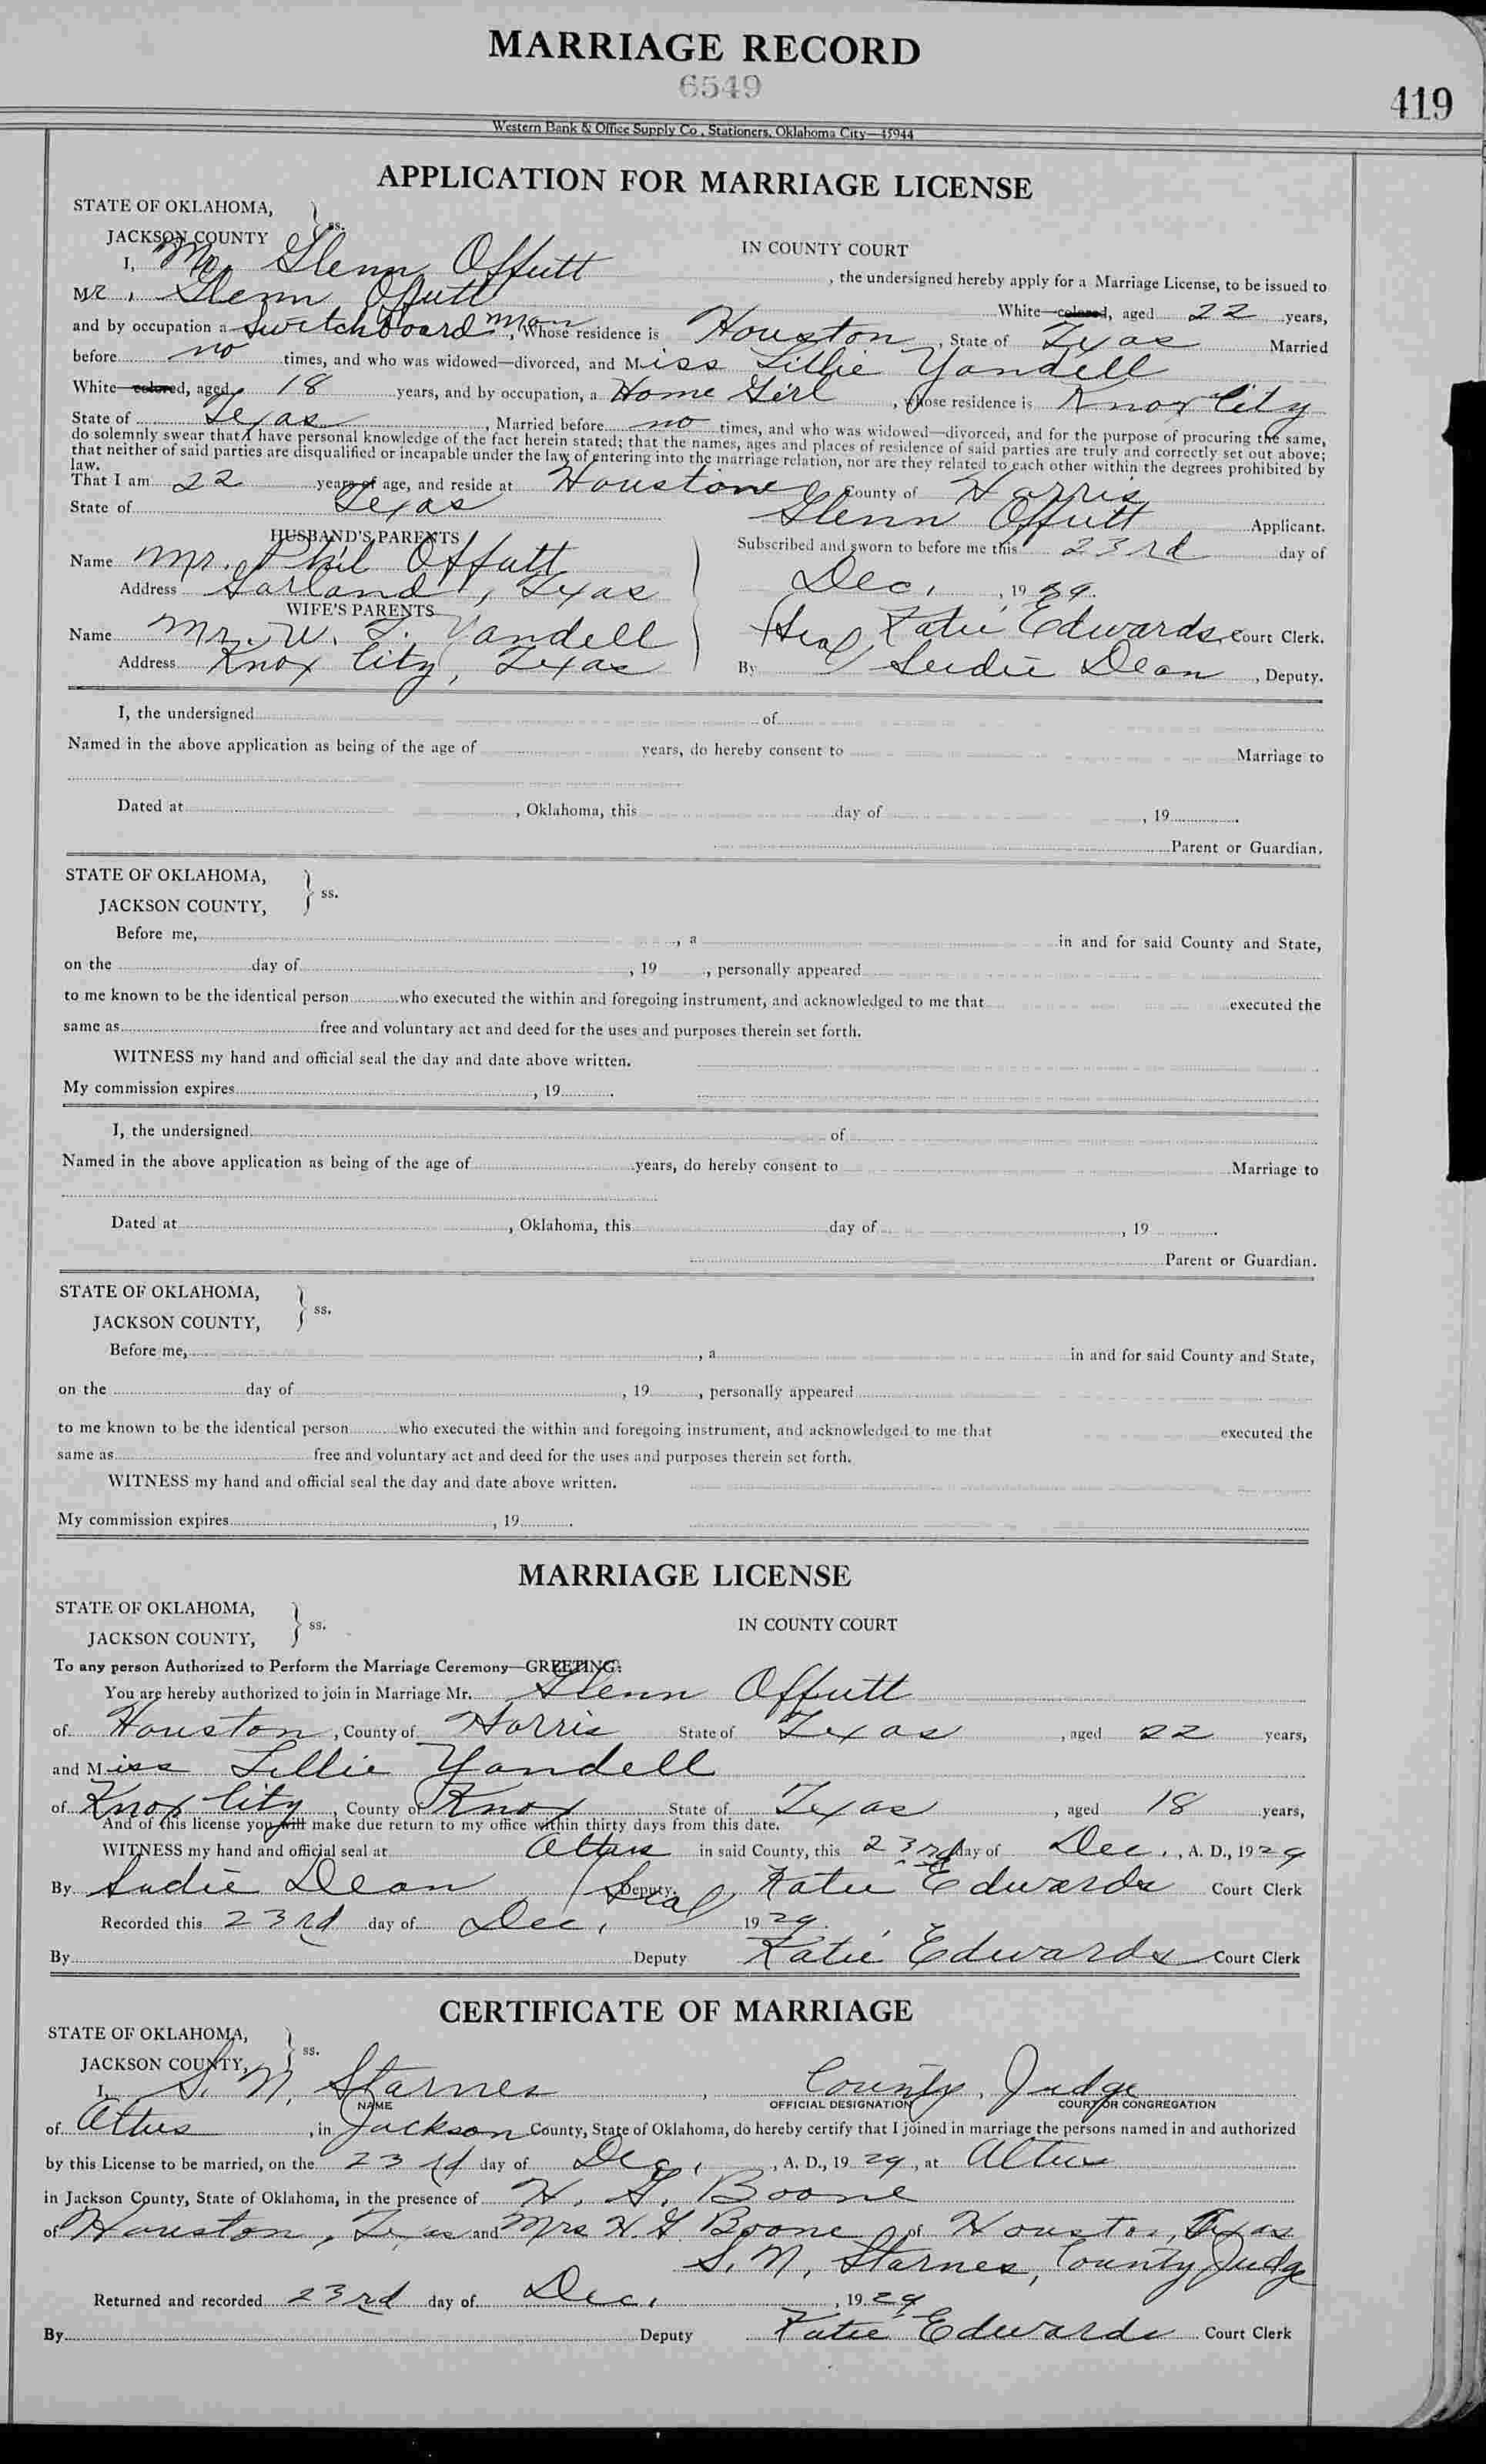 MARRIAGE RECORD
6549
419
Western Bank & Office Supply Co., Stationers, Oklahoma City—45944
APPLICATION FOR MARRIAGE LICENSE
STATE OF OKLAHOMA,
JACKSON COUNTY } ss.
IN COUNTY COURT
I, Mr. Glenn Offutt, the undersigned hereby apply for a Marriage License, to be issued to
Mr. Glenn Offutt White—colored, aged 22 years,
and by occupation a Switchboard man, Whose residence is Houston, State of Texas Married
before no times, and who was widowed—divorced, and Miss Lillie Yandell
White—colored, aged 18 years, and by occupation, a Home Girl, whose residence is Knox City
State of Texas, Married before no times, and who was widowed—divorced, and for the purpose of procuring the same,
do solemnly swear that I have personal knowledge of the fact herein stated; that the names, ages and places of residence of said parties are truly and correctly set out above;
that neither of said parties are disqualified or incapable under the law of entering into the marriage relation, nor are they related to each other within the degrees prohibited by
law.
That I am 22 years of age, and reside at Houston County of Harris
State of Texas Glenn Offutt Applicant.
HUSBAND'S PARENTS
Name Mr. Phil Offutt
Address Garland, Texas
WIFE'S PARENTS
Name Mr. W. T. Yandell
Address Knox City, Texas
Subscribed and sworn to before me this 23rd day of
Dec., 1929.
(Seal) Katie Edwards, Court Clerk.
By Sudie Dean, Deputy.
I, the undersigned of
Named in the above application as being of the age of years, do hereby consent to Marriage to
Dated at , Oklahoma, this day of , 19
Parent or Guardian.
STATE OF OKLAHOMA,
JACKSON COUNTY, } ss.
Before me, , a in and for said County and State,
on the day of , 19 , personally appeared
to me known to be the identical person who executed the within and foregoing instrument, and acknowledged to me that executed the
same as free and voluntary act and deed for the uses and purposes therein set forth.
WITNESS my hand and official seal the day and date above written.
My commission expires , 19 .
I, the undersigned of
Named in the above application as being of the age of years, do hereby consent to Marriage to
Dated at , Oklahoma, this day of , 19
Parent or Guardian.
STATE OF OKLAHOMA,
JACKSON COUNTY, } ss.
Before me, , a in and for said County and State,
on the day of , 19 , personally appeared
to me known to be the identical person who executed the within and foregoing instrument, and acknowledged to me that executed the
same as free and voluntary act and deed for the uses and purposes therein set forth.
WITNESS my hand and official seal the day and date above written.
My commission expires , 19 .
MARRIAGE LICENSE
STATE OF OKLAHOMA,
JACKSON COUNTY, } ss.
IN COUNTY COURT
To any person Authorized to Perform the Marriage Ceremony—GREETING:
You are hereby authorized to join in Marriage Mr. Glenn Offutt
of Houston, County of Harris State of Texas, aged 22 years,
and Miss Lillie Yandell
of Knox City, County of Knox State of Texas, aged 18 years,
And of this license you will make due return to my office within thirty days from this date.
WITNESS my hand and official seal at Altus in said County, this 23rd day of Dec., A. D., 1929
By Sudie Dean Deputy. (Seal) Katie Edwards Court Clerk
Recorded this 23rd day of Dec. 1929.
By Deputy Katie Edwards Court Clerk
CERTIFICATE OF MARRIAGE
STATE OF OKLAHOMA,
JACKSON COUNTY, } ss.
I, S. N. Starnes, County Judge
NAME OFFICIAL DESIGNATION COURT OR CONGREGATION
of Altus, in Jackson County, State of Oklahoma, do hereby certify that I joined in marriage the persons named in and authorized
by this License to be married, on the 23rd day of Dec., A. D., 1929, at Altus
in Jackson County, State of Oklahoma, in the presence of H. G. Boone
of Houston, Texas and Mrs H. G. Boone of Houston, Texas
S. N. Starnes, County Judge
Returned and recorded 23rd day of Dec., 1929
By Deputy Katie Edwards Court Clerk